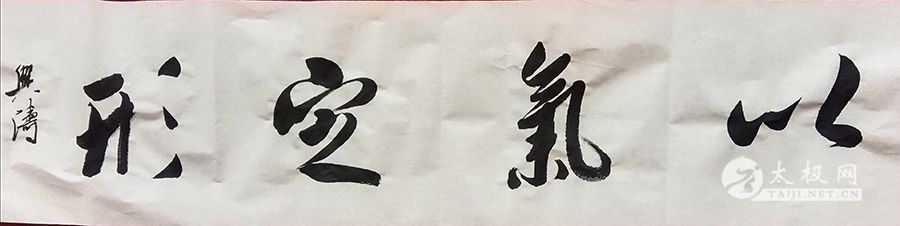 以氣定形
興濤
太极网
TAIJI.NET.CN